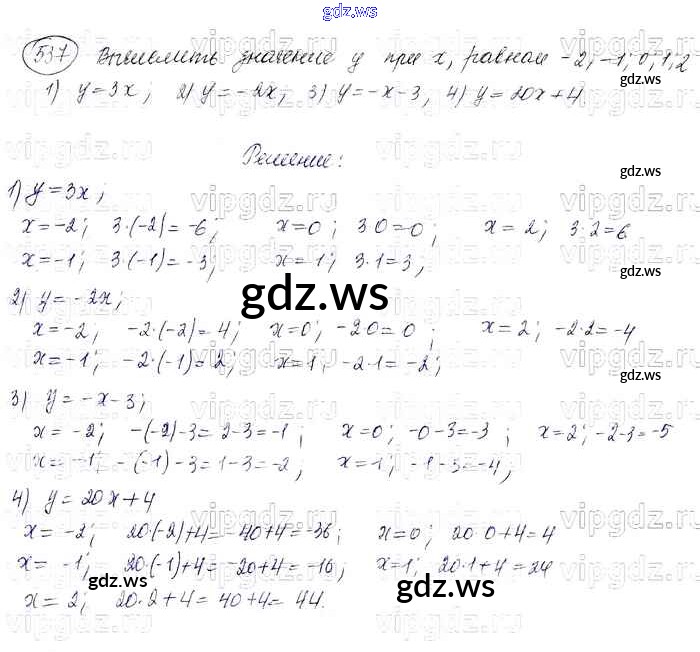 gdz.ws
537 Вычислить значение y при x, равном -2; -1; 0; 1; 2
1) y=3x; 2) y=-2x; 3) y=-x-3, 4) y=20x+4
Решение:
gdz.ws
1) y=3x;
x=-2; 3·(-2)=-6; x=0; 3·0=0; x=2; 3·2=6
gdz.ws
x=-1; 3·(-1)=-3; x=1; 3·1=3;
gdz.ws
2) y=-2x;
x=-2, -2·(-2)=4; x=0; -2·0=0; x=2; -2·2=-4
x=-1; -2·(-1)=2, x=1, -2·1=-2;
gdz.ws
3) y=-x-3;
x=-2; -(-2)-3=2-3=-1; x=0; -0-3=-3; x=2; -2-3=-5
x=-1; -(-1)-3=1-3=-2, x=1; -1-3=-4,
4) y=20x+4
x=-2; 20·(-2)+4=-40+4=-36; x=0; 20·0+4=4
gdz.ws
x=-1; 20·(-1)+4=-20+4=-16, x=1; 20·1+4=24
gdz.ws
gdz.ws
x=2; 20·2+4=40+4=44.
vipgdz.ru
gdz.ws